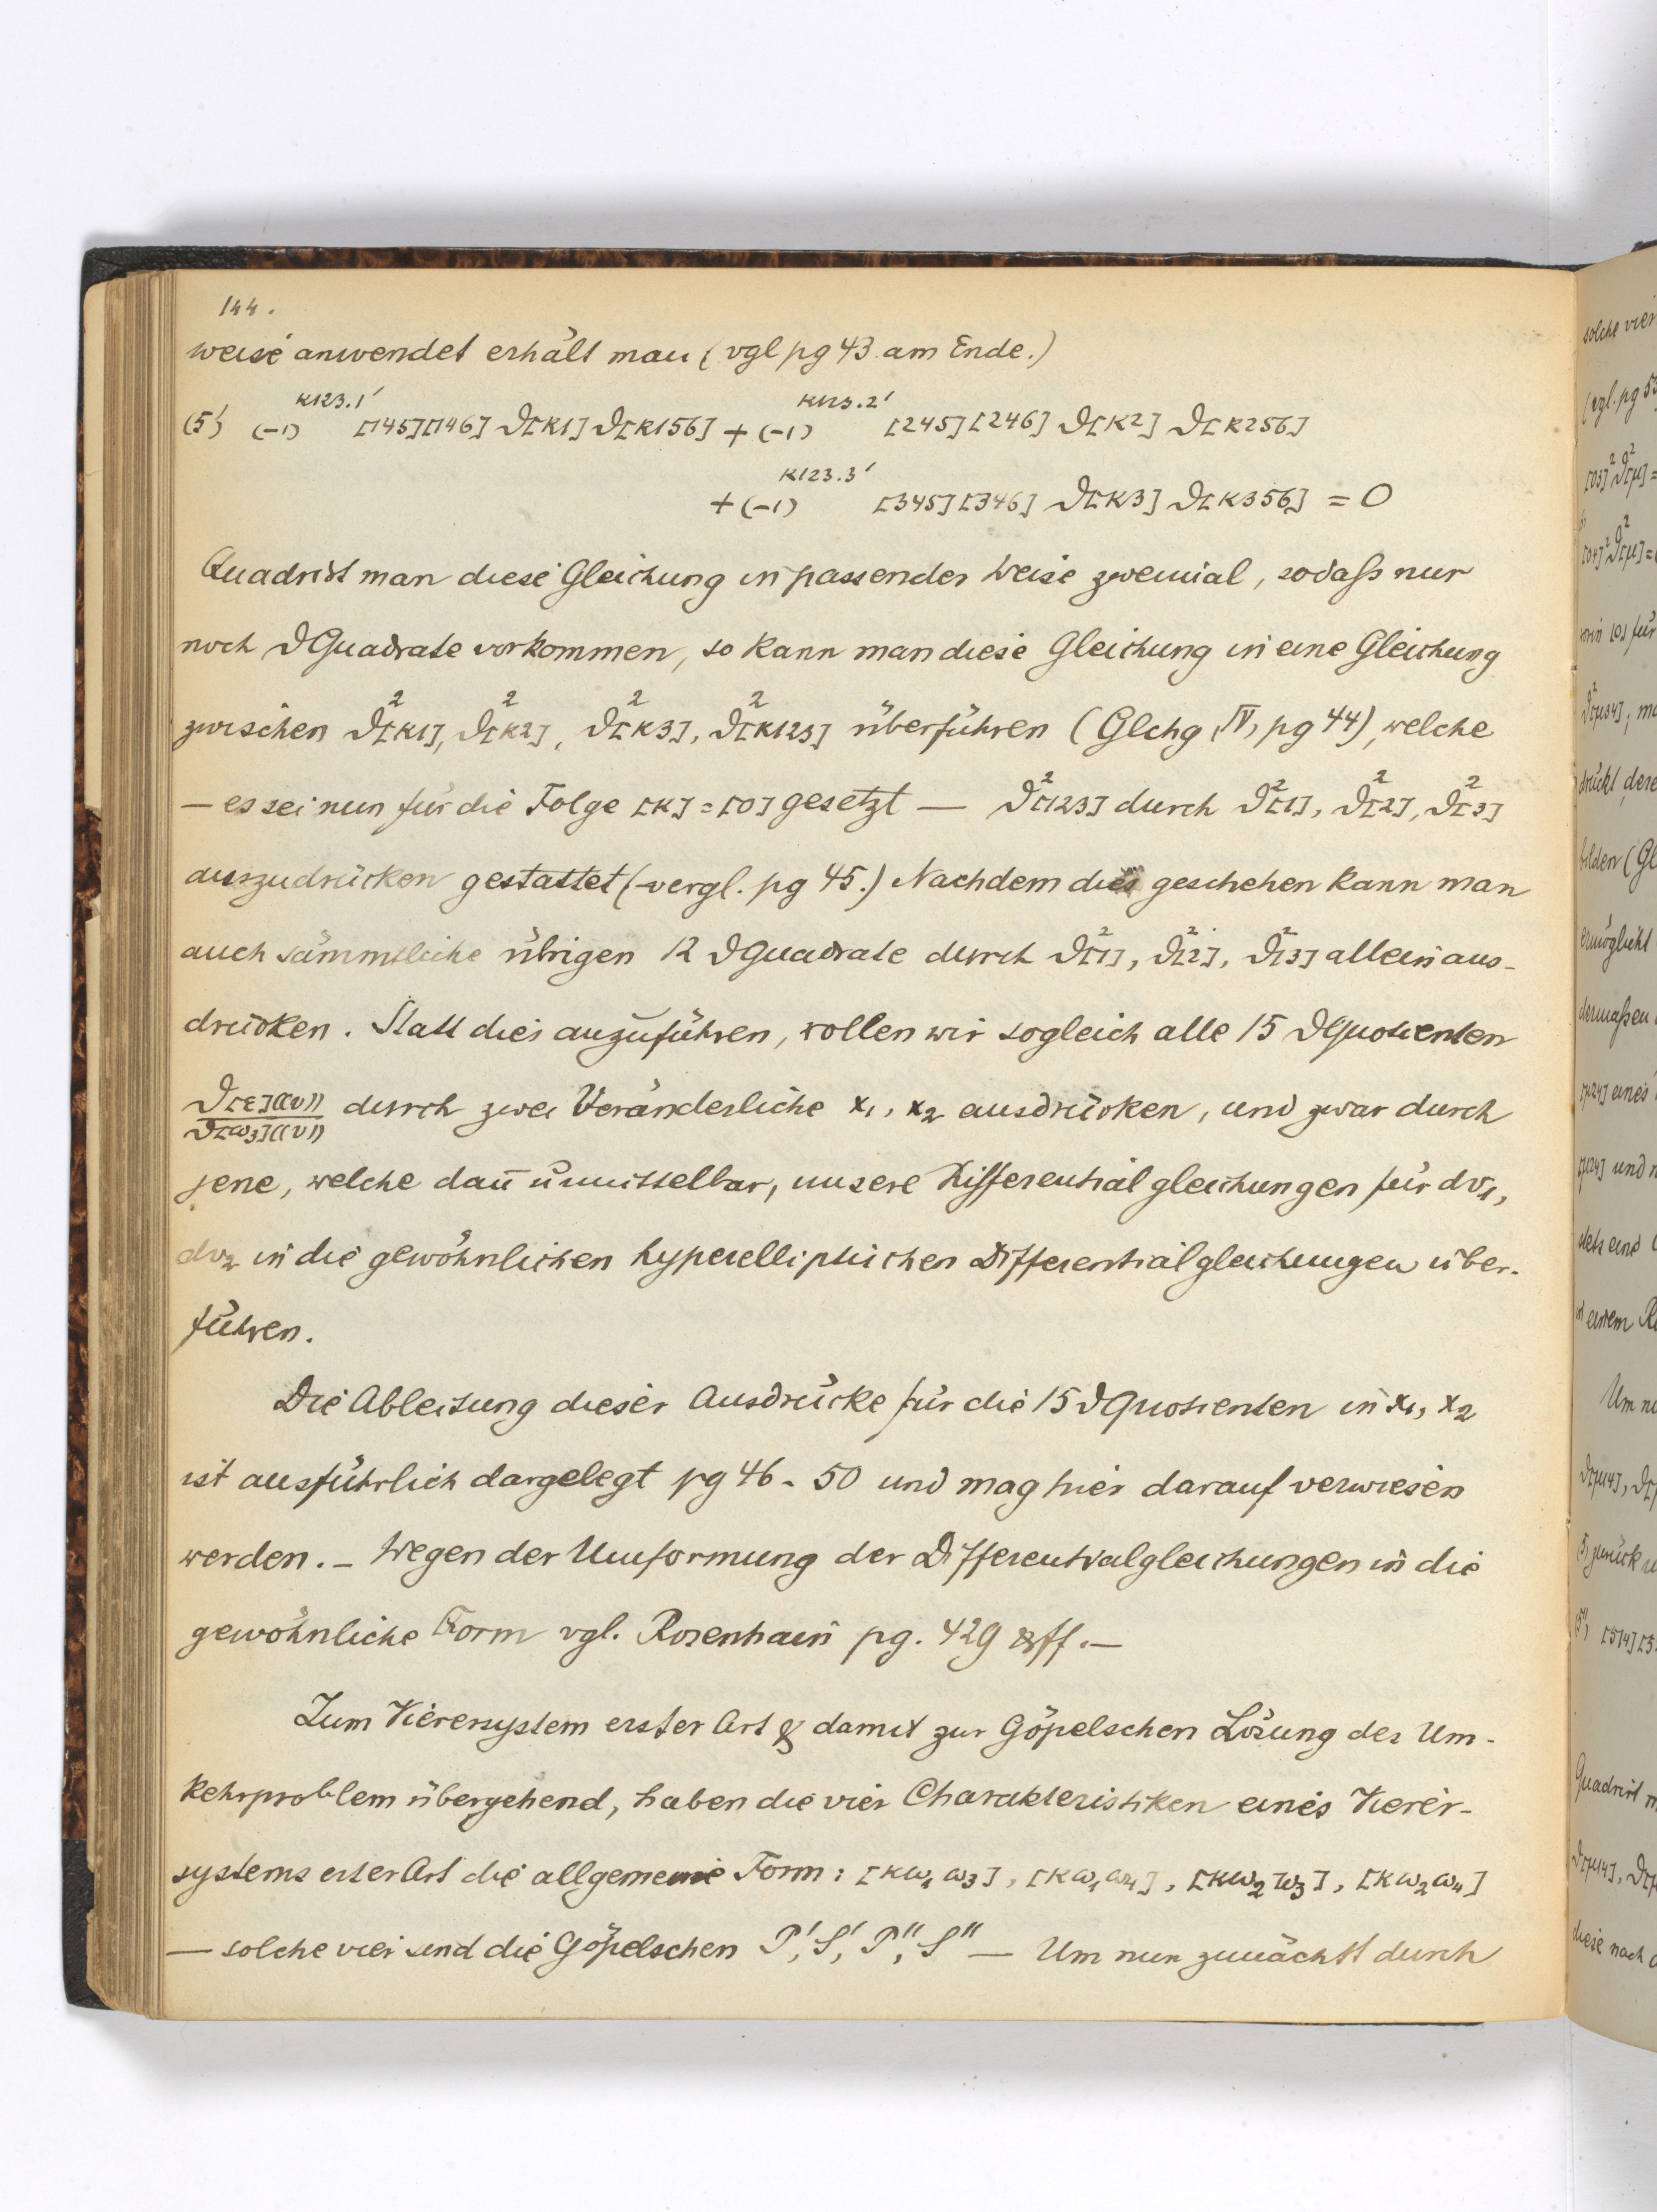 144.
weise anwendet erhält man (vgl pg 43 am Ende.)
(5') (-1)^{K123.1'} [145][146] ϑ[K1] ϑ[K156] + (-1)^{K123.2'} [245][246] ϑ[K2] ϑ[K256]
+ (-1)^{K123.3'} [345][346] ϑ[K3] ϑ[K356] = 0
Quadrirt man diese Gleichung in passender Weise zweimal, sodaß nur
noch ϑQuadrate vorkommen, so kann man diese Gleichung in eine Gleichung
zwischen ϑ²[K1], ϑ²[K2], ϑ²[K3], ϑ²[K123] überführen (Glchg IV, pg 44), welche
— es sei nun für die Folge [K] = [0] gesetzt — ϑ²[123] durch ϑ²[1], ϑ²[2], ϑ²[3]
auszudrücken gestattet (vergl. pg 45.) Nachdem dies geschehen kann man
auch sämmtliche übrigen 12 ϑQuadrate durch ϑ²[1], ϑ²[2], ϑ²[3] allein aus-
drücken. Statt dies anzuführen, wollen wir sogleich alle 15 ϑQuotienten
ϑ[ε]((v)) / ϑ[ω₃]((v)) durch zwei Veränderliche x₁, x₂ ausdrücken, und zwar durch
jene, welche dan̄ unmittelbar, unsere Differentialgleichungen für dv₁,
dv₂ in die gewöhnlichen hyperelliptischen Differentialgleichungen über-
führen.
Die Ableitung dieser Ausdrücke für die 15 ϑQuotienten in x₁, x₂
ist ausführlich dargelegt pg 46 - 50 und mag hier darauf verwiesen
werden. – Wegen der Umformung der Differentialgleichungen in die
gewöhnliche Form vgl. Rosenhain pg. 429 & ff. —
Zum Vierersystem erster Art & damit zur Göpelschen Lösung des Um-
kehrproblem übergehend, haben die vier Charakteristiken eines Vierer-
systems erster Art die allgemeine Form: [Kω₁ω₃], [Kω₁ω₄], [Kω₂ω₃], [Kω₂ω₄]
— solche vier sind die Göpelschen P', S', P'', S'' — Um nun zunächst durch